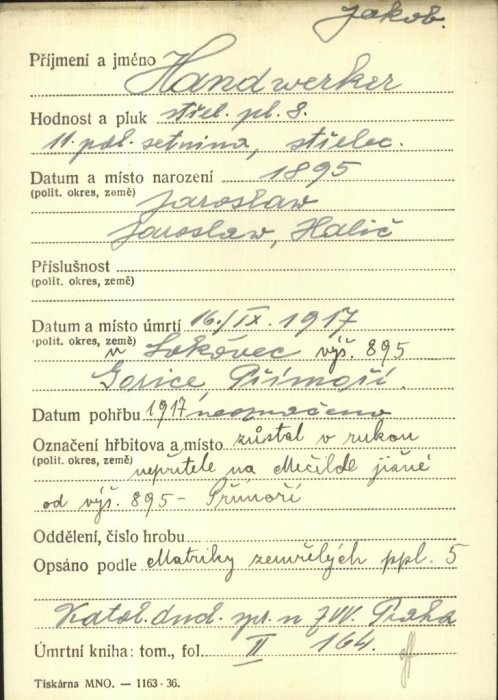 Jakob.
Příjmení a jméno Handwerker
Hodnost a pluk střel. pl. 8.
11. pol. setnina, střelec.
Datum a místo narození 1895
(polit. okres, země) Jaroslaw
Jaroslaw, Halič
Příslušnost
(polit. okres, země)
Datum a místo úmrtí 16./IX. 1917
(polit. okres, země) v Lokovec výš. 895
Gorice, Přímoří.
Datum pohřbu 1917 neoznačeno
Označení hřbitova a místo zůstal v rukou
(polit. okres, země) nepřítele na jižně
od výš. 895 - Přímoří
Oddělení, číslo hrobu
Opsáno podle Matriky zemřelých ppl. 5
Katol. duch. spr. n ZVV. Praha
Úmrtní kniha: tom., fol. II 164.
Tiskárna MNO. — 1163-36.